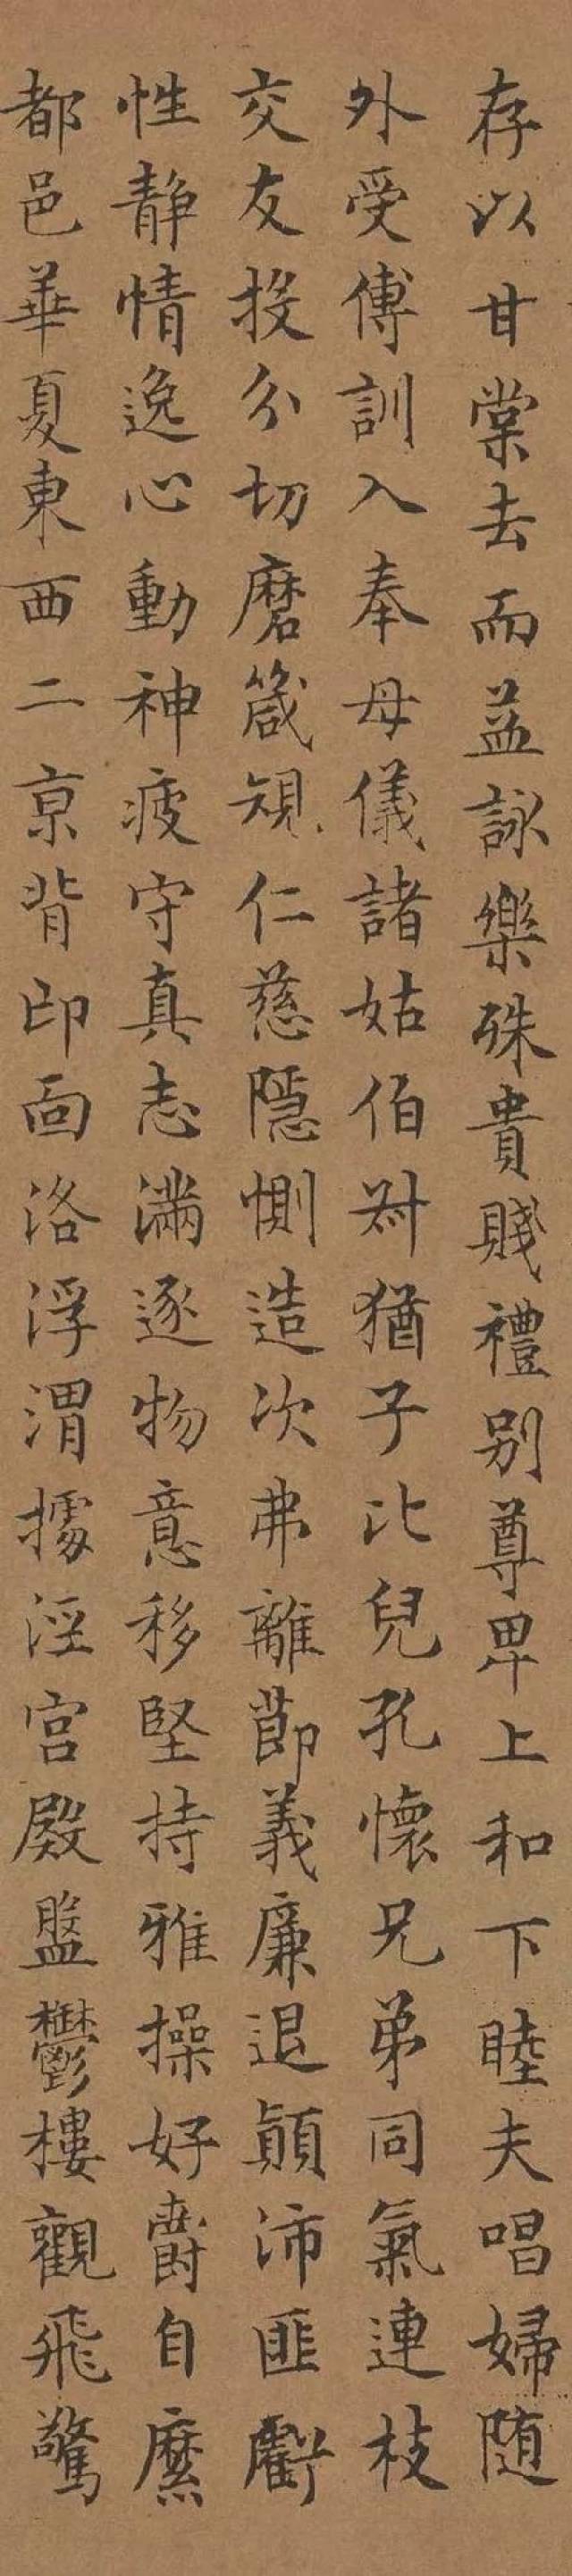 存以甘棠去而益詠樂殊貴賤禮別尊卑上和下睦夫唱婦随
外受傅訓入奉母儀諸姑伯叔猶子比兒孔懷兄弟同氣連枝
交友投分切磨箴規仁慈隱惻造次弗離節義廉退顛沛匪虧
性靜情逸心動神疲守真志滿逐物意移堅持雅操好爵自縻
都邑華夏東西二京背邙面洛浮渭據涇宮殿盤鬱樓觀飛驚